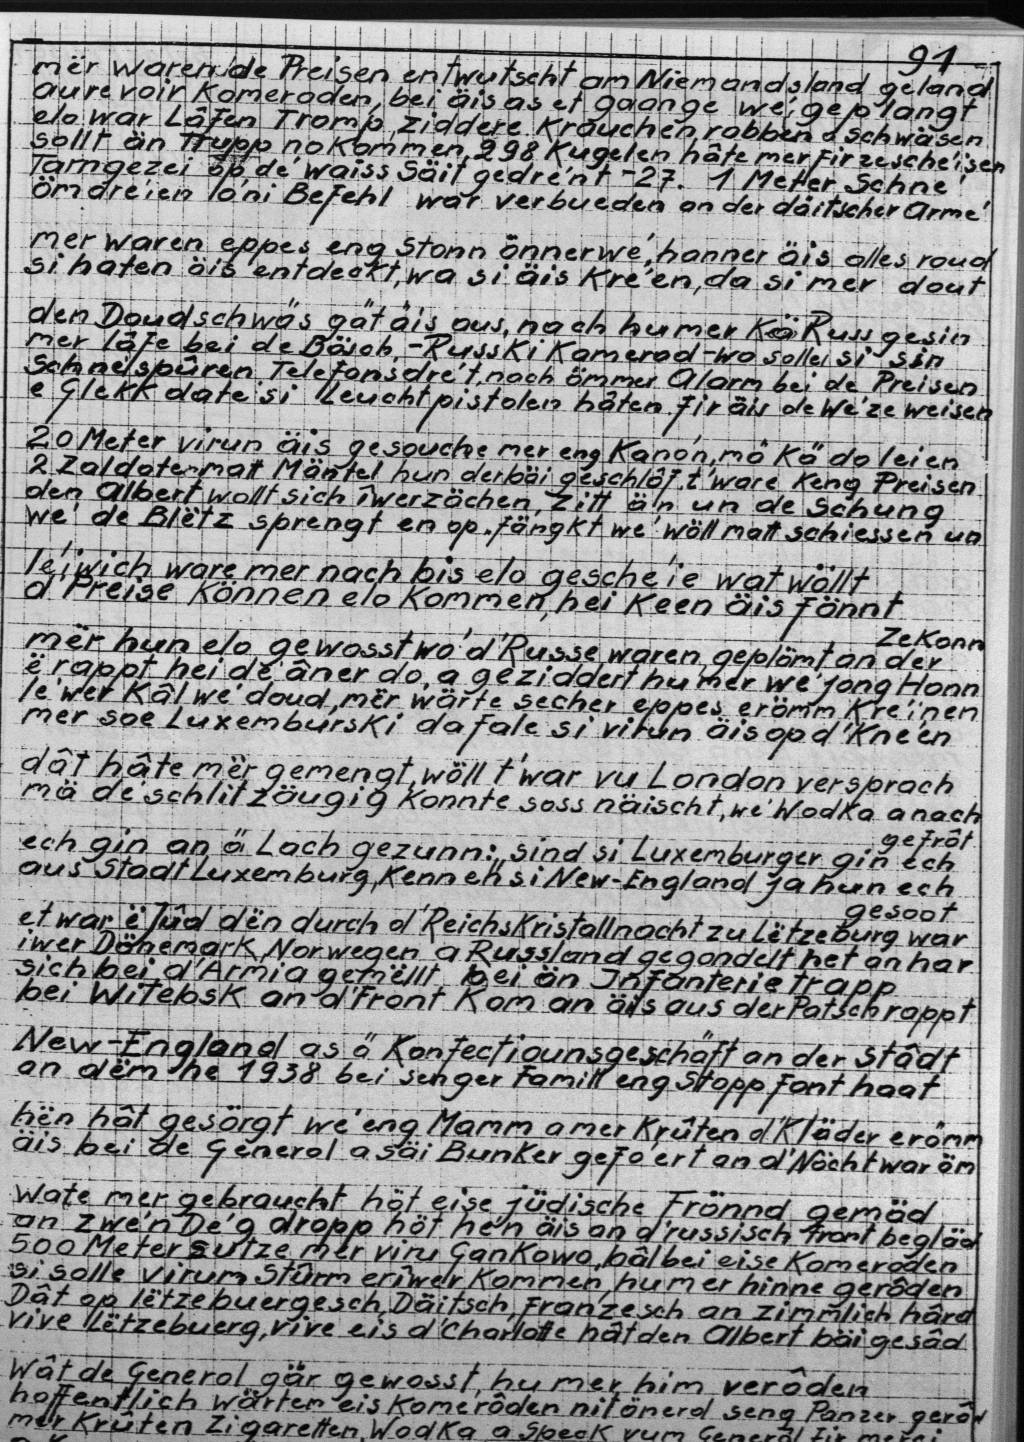 91
mër waren de Preisen entwutscht am Niemandsland geland
aurevoir Komeroden, bei äis as et gaange wé geplangt
elo war Lâfen Tromp, Ziddere Krauchen, robben a Schwäsen
sollt än Trupp no Kommen, 298 Kugelen hâte mer fir ze scheisen
Tarngezei op dé waiss Säit gedrént -27. 1 Meter Schné
ömdréien lóni Befehl war verbueden an der däitscher Armé
mer waren eppes eng Stonn önnerwé, hanner äis alles roud
si haten äis entdeckt, wa si äis Kréen, da si mer dout
den Doudschwäs gät äis aus, nach hu mer Kä Russ gesin
mer lâfe bei de Bäsch, -Russki Kamerad- wo solle si sin
Schnéspûren Telefonsdrét, nach ömmer Alarm bei de Preisen
e Glekk datei si Leuchtpistolen hâten fir äis de Wé ze weisen
20 Meter virun äis gesouche mer eng Kanón, mô Kä do leien
2 Zaldote matt Mäntel hun derbäi geschlôf, t'ware Keng Preisen
den Albert wollt sich iwerzächen, Zitt än un de Schung
wé de Blëtz sprengt en op, fängkt wé wöll matt schiessen un
léiwich ware mer nach bis elo geschéie wat wöllt
d'Preise können elo Kommen, hei Keen äis fönnt
mër hun elo gewosst wó d'Russe waren, geplömt an der
ZeKonn
ë rappt hei dé âner do, a geziddert hu mer wé jong Honn
léwer Kâl wé doud, mër wärte secher eppes erömm Kréinen
mer soe Luxemburski da fale si virun äis op d'Knéen
dât hâte mër gemengt, wöll t'war vu London versprach
mä dé schlitzäugig Konnte soss näischt, wé Wodka a nach
gefrôt
ech gin an ä Lach gezunn: „sind si Luxemburger gin ech
aus Stadt Luxemburg, Kennen si New-England ja hun ech
gesoot
et war ë Jûd dën durch d'Reichskristallnacht zu Lëtzeburg war
iwer Dänemark, Norwegen a Russland gegondelt het an har
sich bei d'Armia gemëllt bei än Infanterietrapp
bei Witebsk an d'Front Kom an äis aus der Patsch rappt
New-England as ä Konfectiounsgeschäft an der Stâdt
an dëm he 1938 bei senger Famill eng Stopp font haat
hën hât gesörgt wé eng Mamm a mer Krûten d'Kläder erömm
äis bei de General a säi Bunker gefóert an d'Nöcht war öm
wate mer gebraucht höt eise jüdische Frönnd gemäd
an zwén Dég dropp höt hën äis an d'russisch front begläd
500 Meter sutze mer viru Gankowo, bâl bei eise Komeroden
si solle virum Stûrm eriwer Kommen, hu mer hinne gerôden
Dât op lëtzebuergesch, Däitsch, Franzesch an zimmlich hârd
vive Lëtzebuerg, vive eis d'Charlotte hât den Albert bäigesâd
Wât de General gär gewosst, hu mer him verôden
hoffentlich wärten eis Komerôden nit önerd seng Panzer gerôd
mer Krûten Zigaretten, Wodka a Speck vum General fir merci